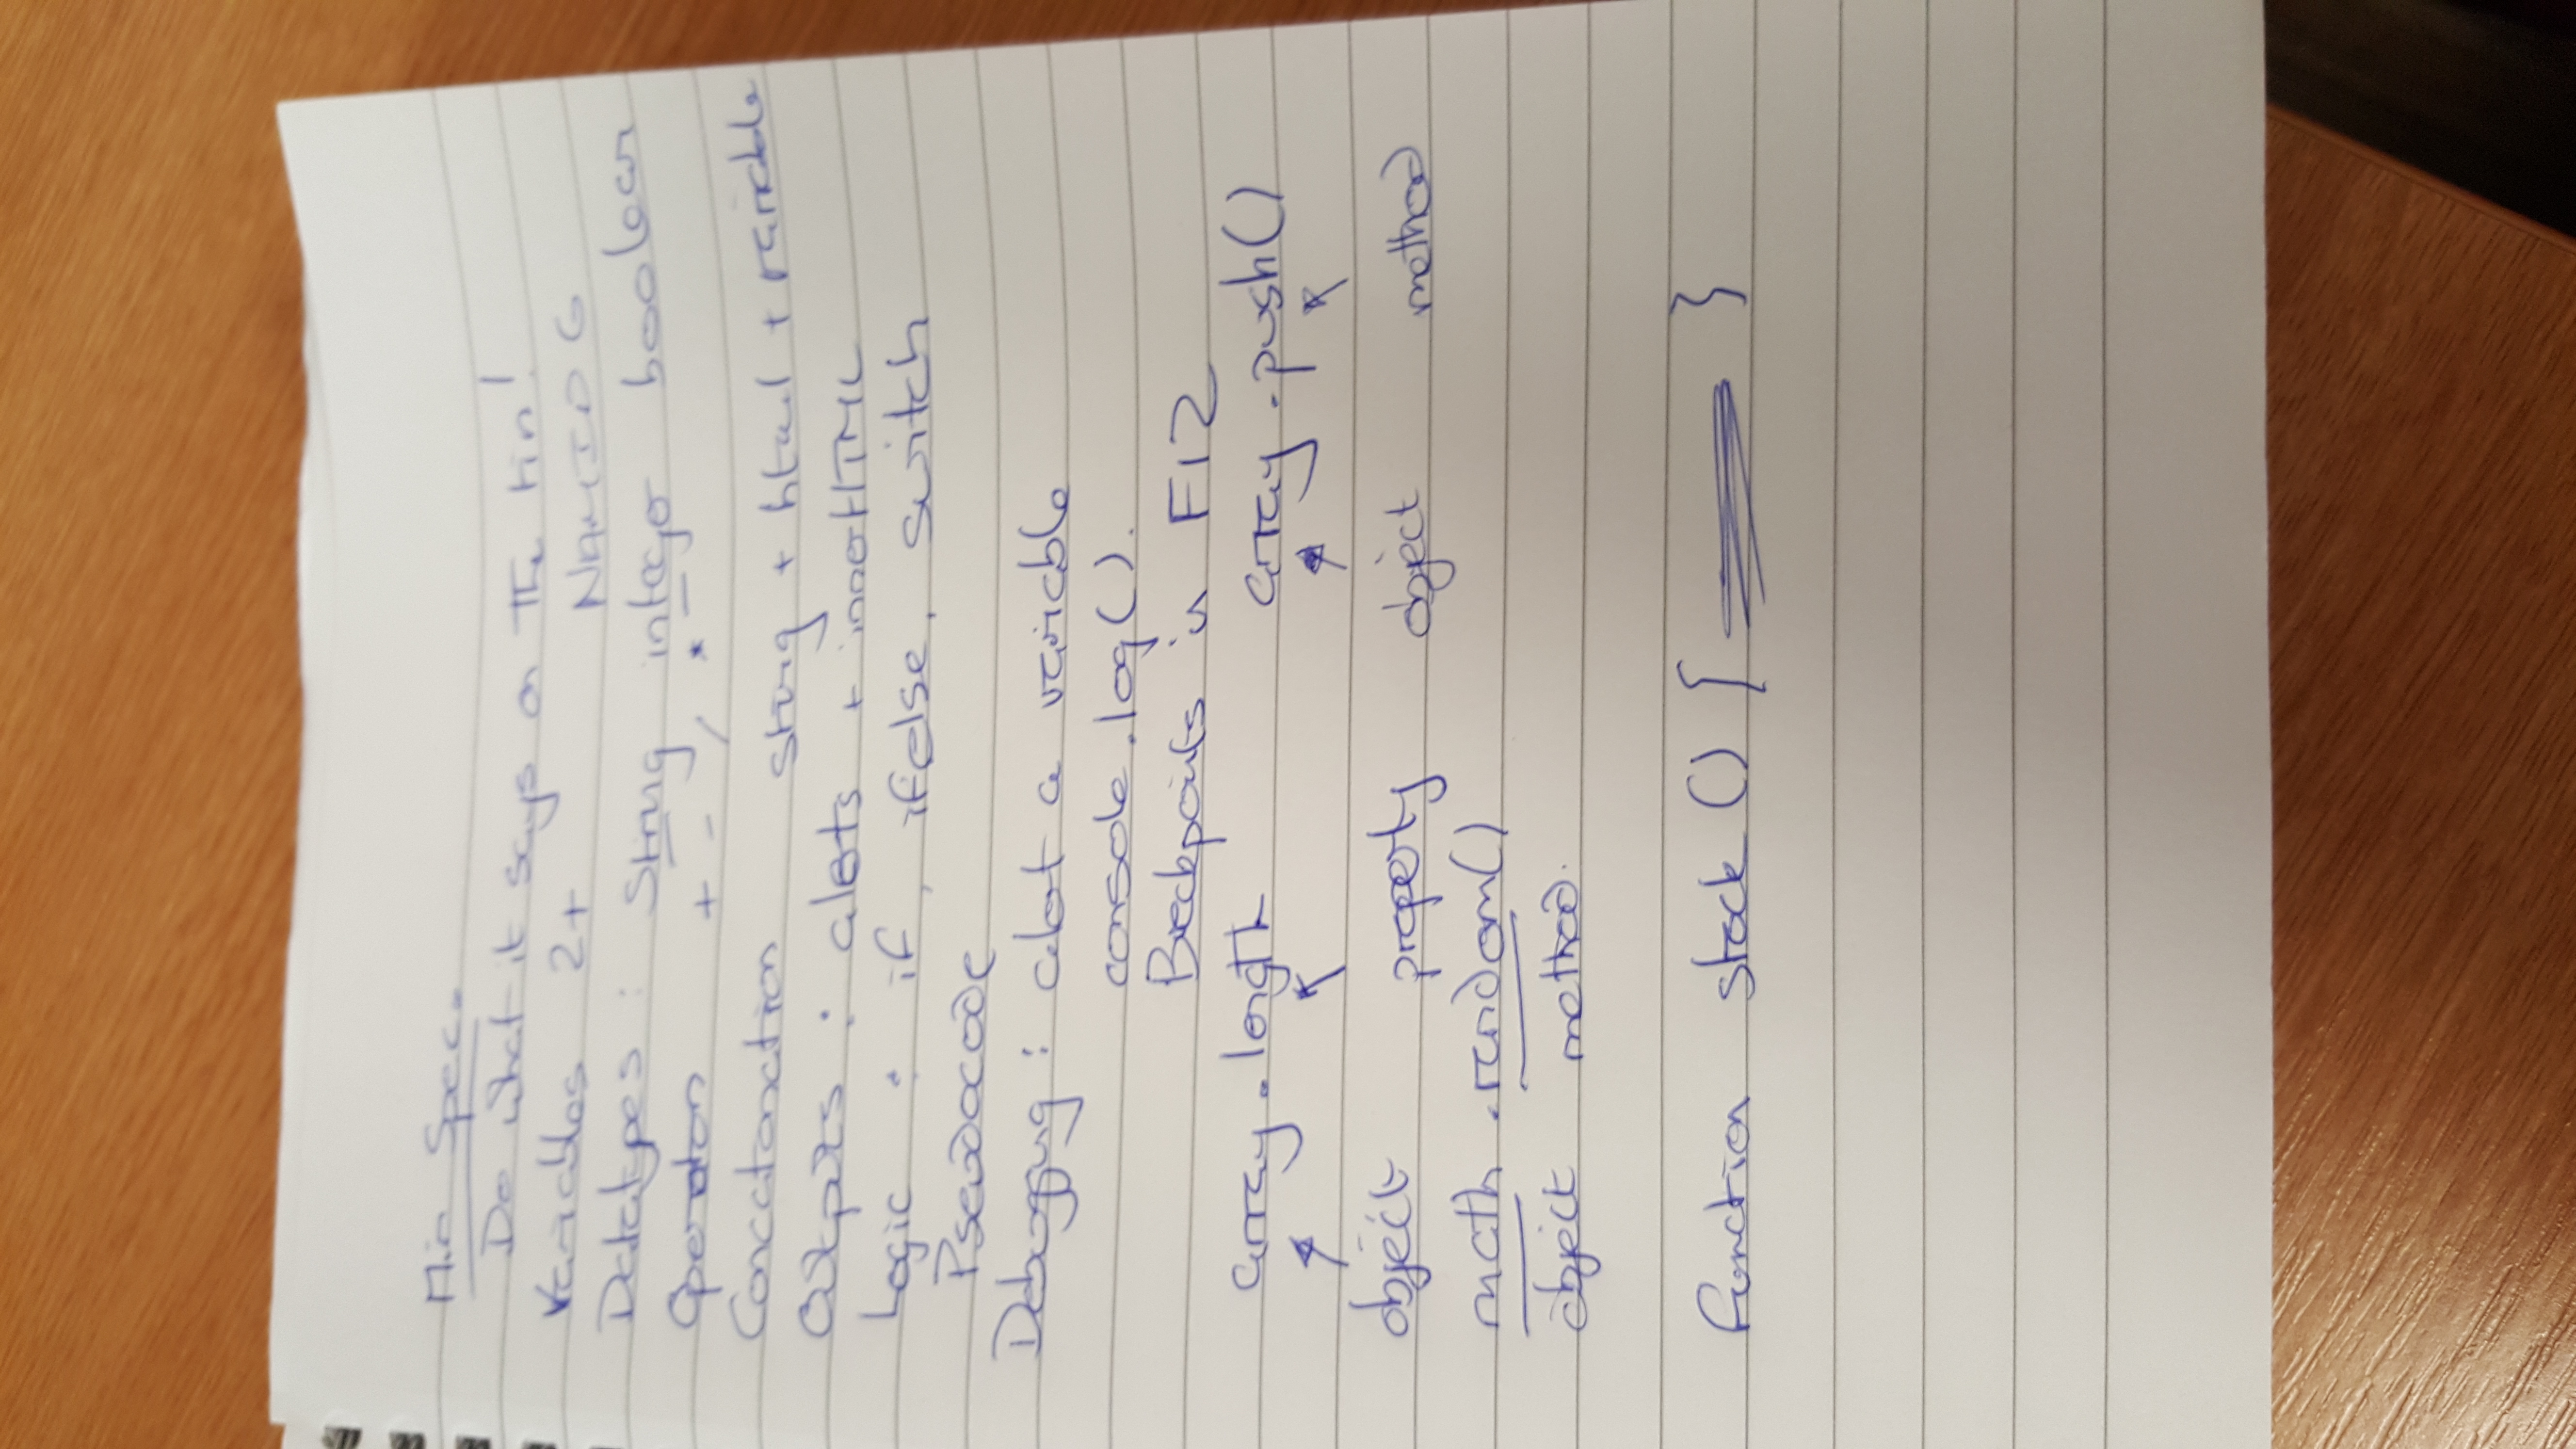 Min Spec.
Do what it says on the tin!
Variables 2+ NAMING
Datatypes : String integer boolean
Operators + - / *
Concatonation string + html + variable
Outputs : alerts + innerHTML
Logic : if, ifelse, switch
Pseudocode
Debugging : alert a variable
console.log().
Breakpoints in F12
array.length array.push()
object property object method
math.random()
object method.
function stock () { }